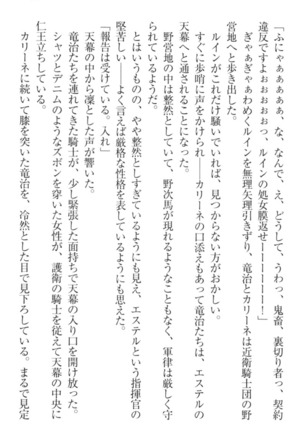 「ふにゃぁぁぁぁぁ、な、なんで、え、どうして、うわっ、鬼畜、裏切り者っ、契約
違反ですよぉぉぉぉぉっ、ルインの処女膜返せーーーーーー！」
ぎゃぁぎゃぁわめくルインを無理矢理引きずり、竜治とカリーネは近衛騎士団の野
営地へと歩き出した。
ルインがこれだけ騒いでいれば、見つからない方がおかしい。
すぐに歩哨に声をかけられ――カリーネの口添えもあって竜治たちは、エステルの
天幕へと通されることになった。
野営地の中は整然としていて、野次馬が現れるようなこともなく、軍律は厳しく守
られているようだ。
とはいうものの、やや整然としすぎているようにも見え、エステルという指揮官の
堅苦しい――よく言えば厳格な性格を表しているようにも思えた。
「報告は受けている。入れ」
天幕の中から凛とした声が響いた。
竜治たちを連れてきた騎士が、少し緊張した面持ちで天幕の入り口を開け放った。
シャツとデニムのようなズボンを穿いた女性が、護衛の騎士を従えて天幕の中央に
仁王立ちしている。
カリーネに続いて膝を突いた竜治を、冷然とした目で見下ろしている。まるで見定